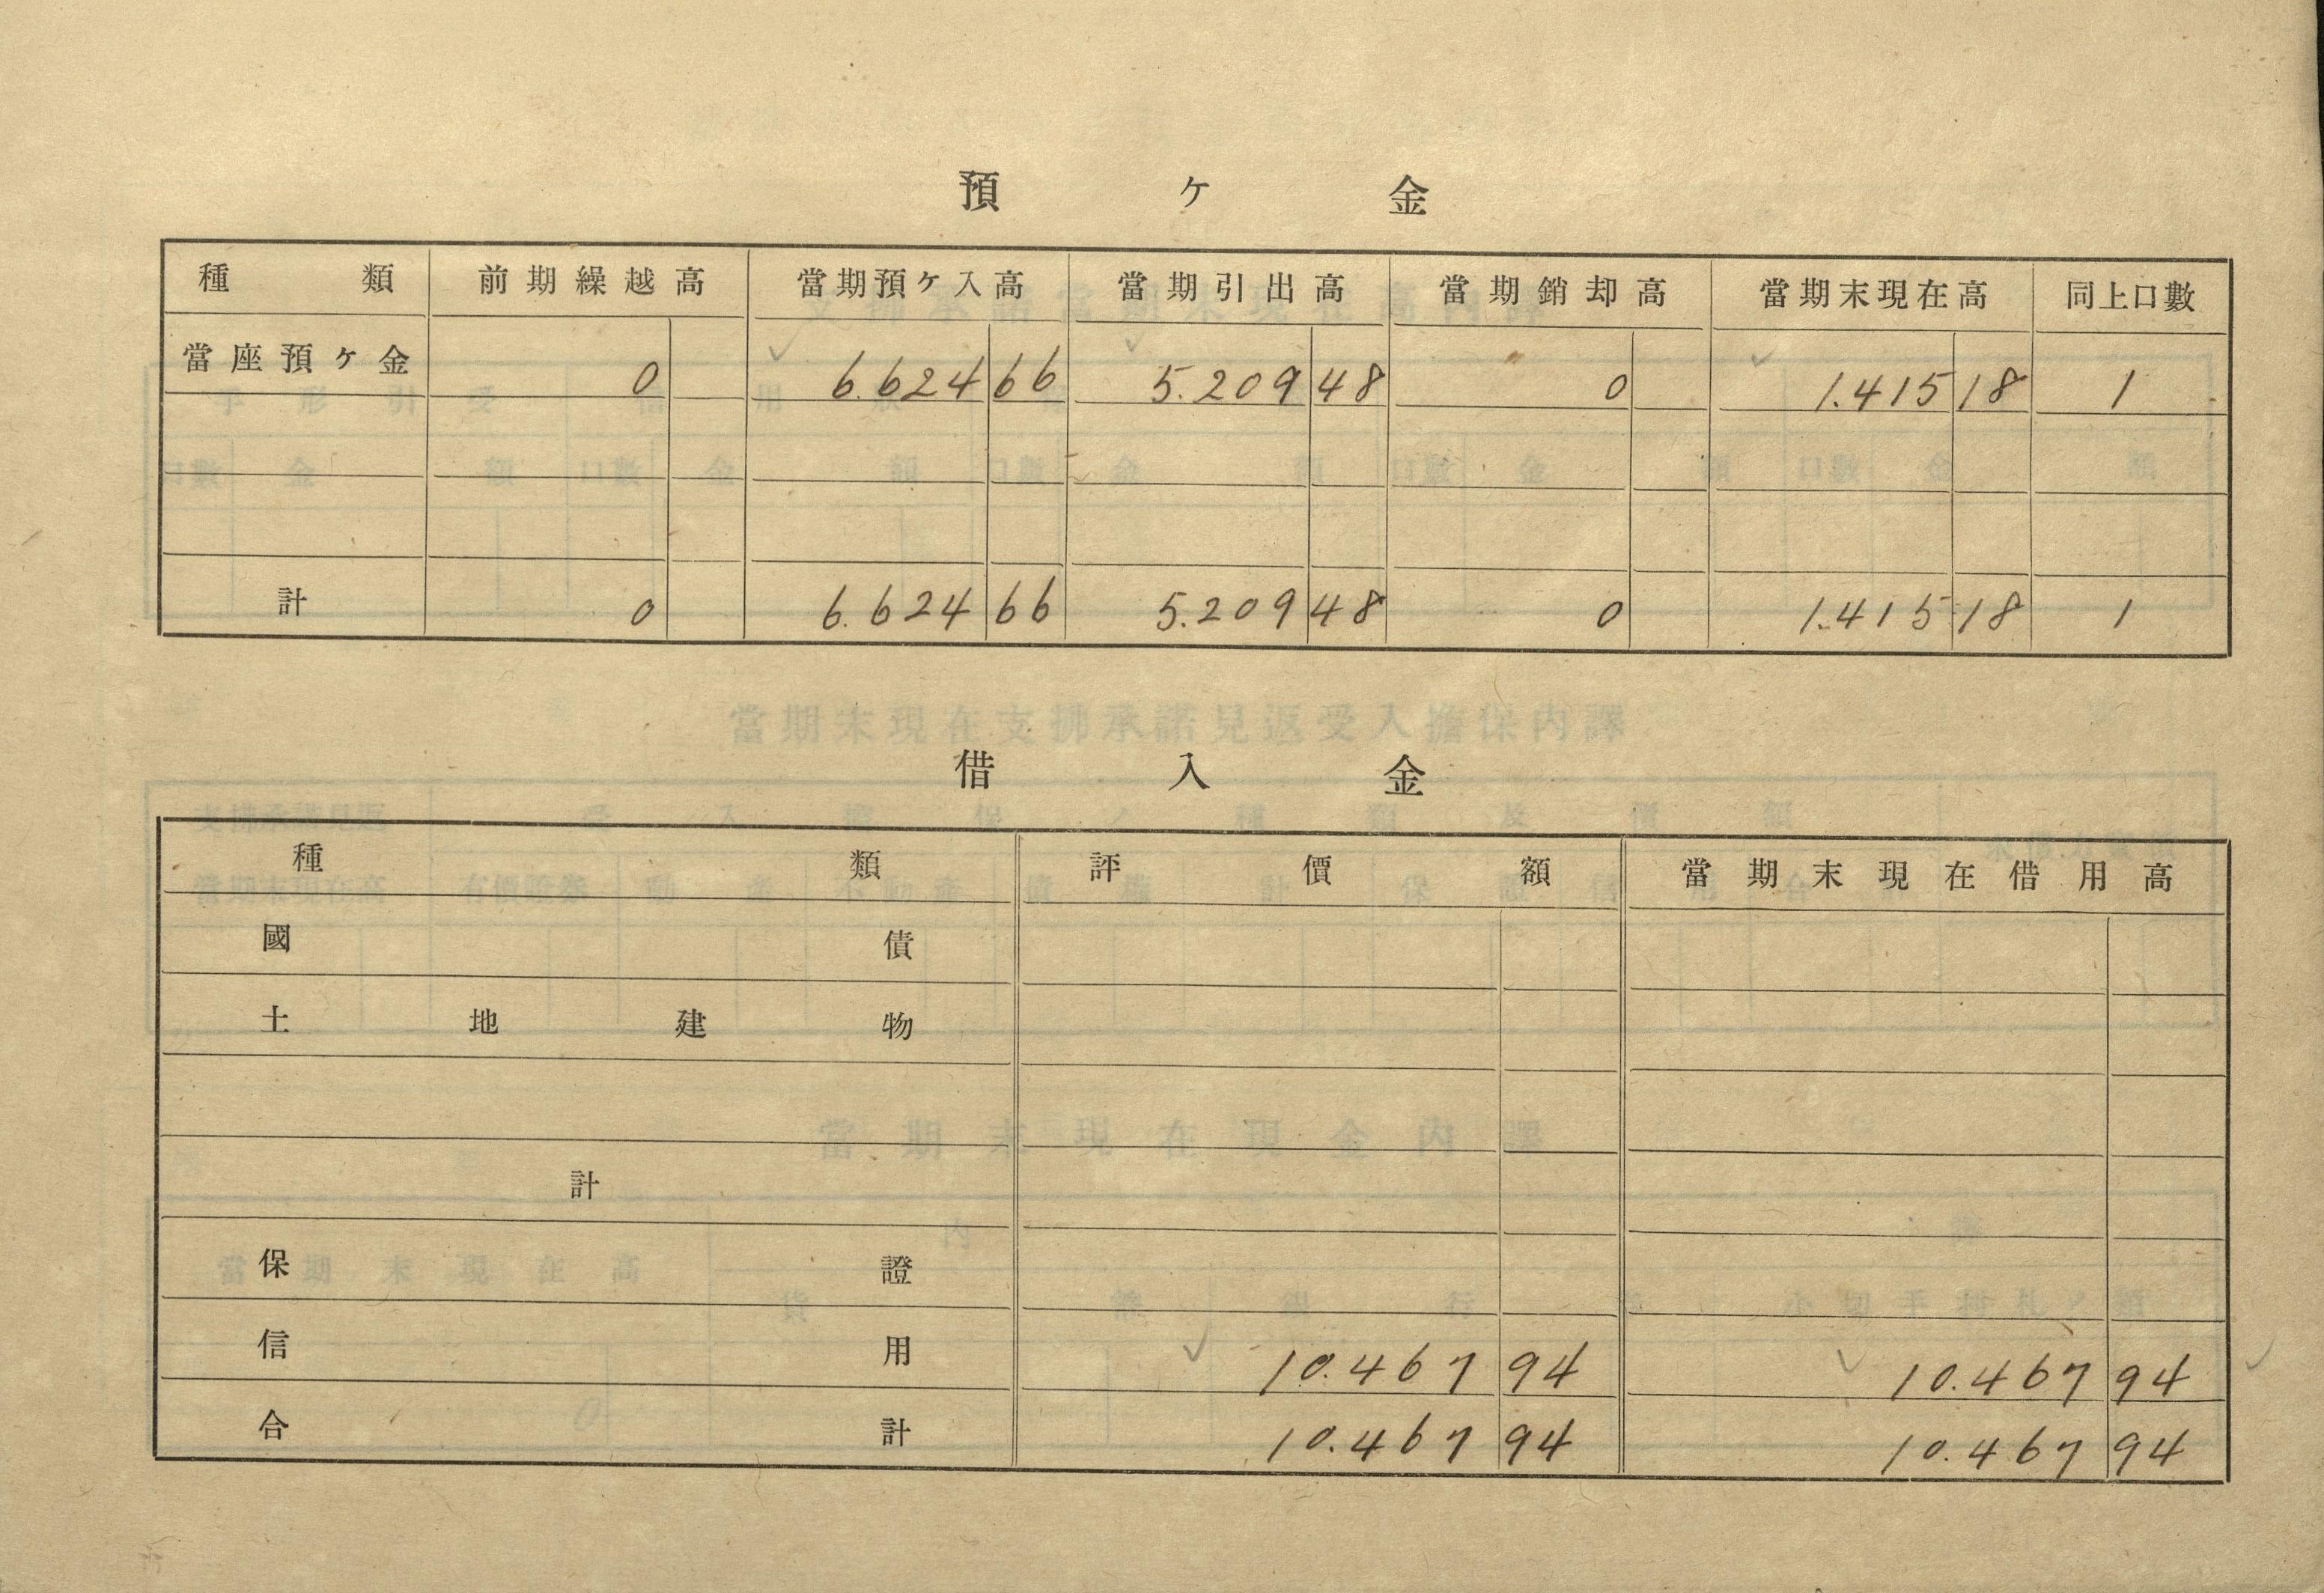 預ケ金
種類 前期繰越高 當期預ケ入高 當期引出高 當期銷却高 當期末現在高 同上口數
當座預ケ金 0 6.624 66 5.209 48 0 1.415 18 1
計 0 6.624 66 5.209 48 0 1.415 18 1
借入金
種類 評價額 當期末現在借用高
國債
土地建物
計
保證
信用 10.467 94 10.467 94
合計 10.467 94 10.467 94